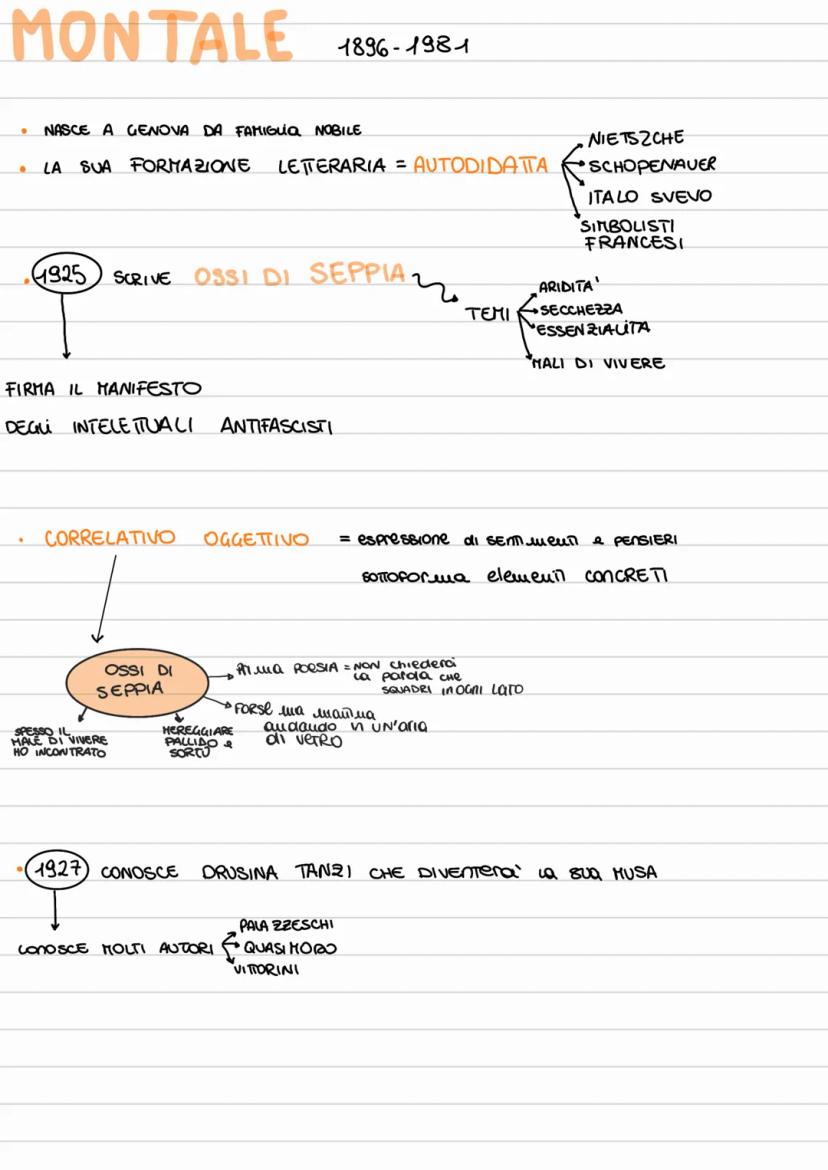 MONTALE 1896-1981
• NASCE A GENOVA DA FAMIGLIA NOBILE
• LA SUA FORMAZIONE LETTERARIA = AUTODIDATTA
NIETSZCHE
SCHOPENAUER
ITALO SVEVO
SIMBOLISTI
FRANCESI
• 1925 SCRIVE OSSI DI SEPPIA
TEMI
ARIDITA'
SECCHEZZA
ESSENZIALITA
MALI DI VIVERE
FIRMA IL MANIFESTO
DEGLI INTELETTUALI ANTIFASCISTI
• CORRELATIVO OGGETTIVO = espressione di sentimenti e PENSIERI
SOTTOFORMA elementi CONCRETI
OSSI DI
SEPPIA
PRIMA POESIA = NON chiederci
la parola che
SQUADRI IN OGNI LATO
FORSE una mattina
andando in UN'aria
di vetro
SPESSO IL
MALE DI VIVERE
HO INCONTRATO
MEREGGIARE
PALLIDO e
SORTO
• 1927 CONOSCE DRUSINA TANZI CHE DIVENTERA' LA SUA MUSA
CONOSCE MOLTI AUTORI
PALAZZESCHI
QUASIMODO
VITTORINI